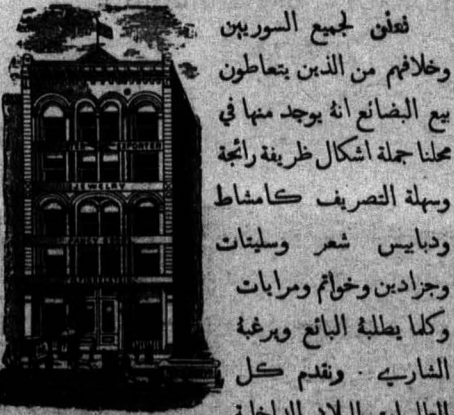 نعلن لجميع السوريين
وخلافهم من الذين يتعاطون
بيع البضائع انهُ يوجد منها في
محلنا جملة اشكال ظريفة رائجة
وسهلة التصريف كامشاط
ودبابيس شعر وسليتات
وجزادين وخواتم ومرايات
وكلما يطلبهُ البائع ويرغبهُ
الشاري . ونقدم كل
JEWELRY
FANCY GOODS